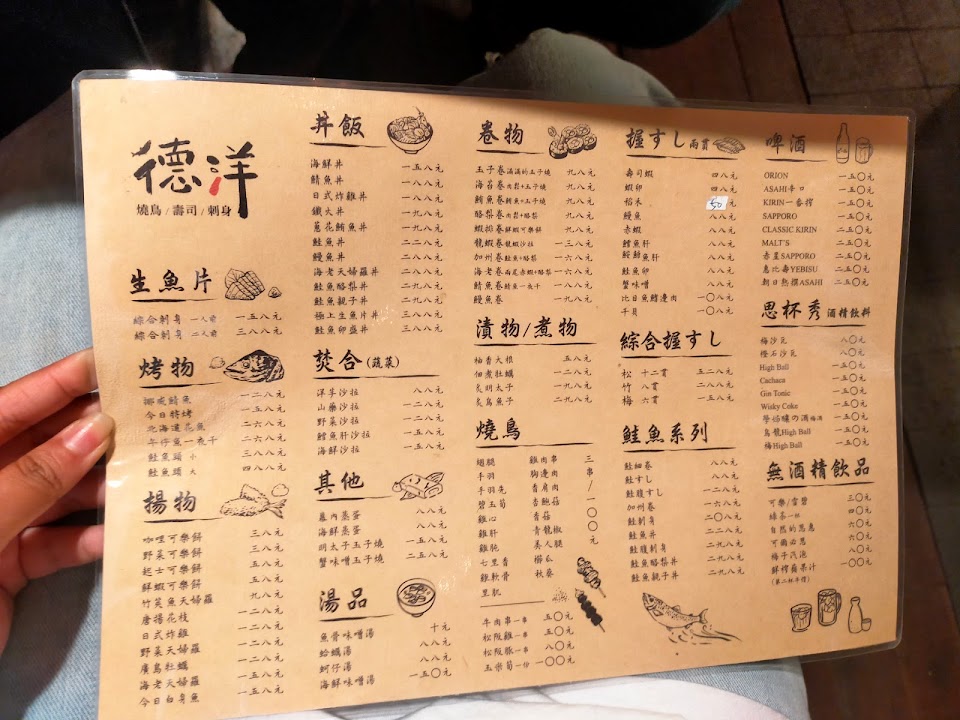 德洋
燒鳥/壽司/刺身
生魚片
綜合刺身 一人前 一五八元
綜合刺身 二人前 三八八元
烤物
挪威鯖魚 一二八元
今日特烤 一五八元
北海道花魚 二六八元
午仔魚一夜干 二六八元
鮭魚頭 小 三八八元
鮭魚頭 大 四八八元
揚物
咖哩可樂餅 三八元
野菜可樂餅 三八元
起士可樂餅 五八元
鮮蝦可樂餅 五八元
竹筴魚天婦羅 九八元
唐揚花枝 一二八元
日式炸雞 一二八元
野菜天婦羅 一二八元
廣島牡蠣 一二八元
海老天婦羅 一五八元
今日白身魚
丼飯
海鮮丼 一五八元
鯖魚丼 一八八元
日式炸雞丼 一八八元
鐵火丼 一九八元
蔥花鮪魚丼 一九八元
鮭魚丼 二二八元
鰻魚丼 二八八元
海老天婦羅丼 二八八元
鮭魚酪梨丼 二八八元
鮭魚親子丼 二八八元
極上生魚片丼 三八八元
鮭魚卵盛丼 三八八元
焚合(蔬菜)
洋芋沙拉 八八元
山藥沙拉 一二八元
野菜沙拉 一二八元
鱈魚肝沙拉 一五八元
海鮮沙拉 一五八元
其他
蕈肉蒸蛋 八八元
海鮮蒸蛋 八八元
明太子玉子燒 一五八元
蟹味噌玉子燒 二五八元
湯品
魚骨味噌湯 十元
蛤蠣湯 八八元
蚵仔湯 八八元
海鮮味噌湯 一五〇元
卷物
玉子卷 滿滿的玉子燒 九八元
海苔卷 肉鬆+玉子燒 九八元
鮪魚卷 鮪魚+玉子燒 九八元
酪梨卷 肉鬆+酪梨 九八元
蝦排卷 鮮蝦可樂餅 九八元
龍蝦卷 龍蝦沙拉 一三八元
加州卷 鮭魚+酪梨 一六八元
海老卷 兩尾赤蝦+酪梨 一六八元
鯖魚卷 鯖魚一夜干 一八八元
鰻魚卷 一九八元
漬物/煮物
柚香大根 五八元
佃煮牡蠣 一二八元
炙明太子 一九八元
炙烏魚子 二九八元
燒鳥
翅腿 雞肉串 三
手羽 胸邊肉 串
手羽先 香肩肉 /
碧玉筍 杏鮑菇 一
雞心 香菇 〇
雞肝 青龍椒 〇
雞胗 美人腿 元
七里香 櫛瓜
雞軟骨 秋葵
里肌
牛肉串一串 五〇元
松阪雞一串 五〇元
松阪豚一串 八〇元
玉米筍一份 一〇〇元
握すし 兩貫
壽司蝦 四八元
蝦卵 四八元
稻禾 50元
鰻魚 八八元
赤蝦 八八元
鱈魚肝 八八元
鮟鱇魚肝 八八元
鮭魚卵 八八元
蟹味噌 八八元
比目魚鰭邊肉 一〇八元
干貝 一〇八元
綜合握すし
松 十二貫 五二八元
竹 八貫 二八八元
梅 六貫 一五八元
鮭魚系列
鮭細卷 八八元
鮭すし 八八元
鮭腹すし 一二八元
加州卷 一六八元
鮭刺身 二〇八元
鮭魚丼 二二八元
鮭腹刺身 二九八元
鮭魚酪梨丼 二八八元
鮭魚親子丼 二八八元
啤酒
ORION 一五〇元
ASAHI辛口 一五〇元
KIRIN一番搾 一五〇元
SAPPORO 一五〇元
CLASSIC KIRIN 二五〇元
MALT'S 二五〇元
赤星SAPPORO 二五〇元
惠比壽YEBISU 二五〇元
朝日熟撰ASAHI 二五〇元
思杯秀 酒精飲料
梅沙瓦 八〇元
橙石沙瓦 八〇元
High Ball 一五〇元
Cachaca 一五〇元
Gin Tonic 一五〇元
Wisky Coke 一五〇元
學伯釀の酒 梅酒 一五〇元
烏龍High Ball 一五〇元
梅High Ball 一五〇元
無酒精飲品
可樂/雪碧 三〇元
綠茶一杯 四〇元
自然的恩惠 六〇元
可爾必思 六〇元
梅子汽泡 八〇元
鮮榨蘋果汁 一〇〇元
(第二杯半價)